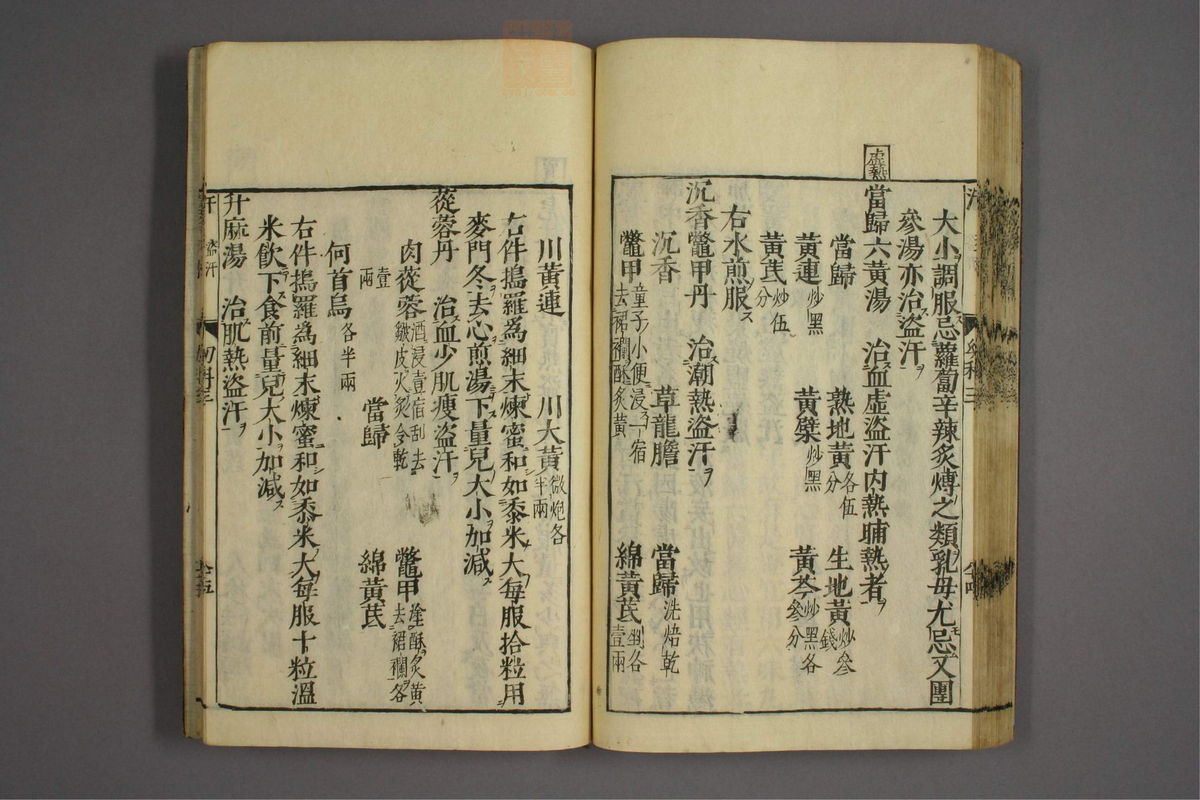 大小調服忌蘿蔔辛辣炙煿之類乳母尤忌又團
參湯亦治盜汗
虛熱
當歸六黃湯 治血虛盜汗內熱晡熱者
當歸 熟地黃各伍分 生地黃炒參錢
黃連炒黑 黃檗炒黑 黃芩炒黑各參分
黃芪炒伍分
右水煎服ス
沉香鼈甲丹 治潮熱盜汗ヲ
沉香 草龍膽 當歸洗焙乾
鼈甲童子小便浸一宿去裙襴酥炙黃 綿黃芪剉各壹兩
川黃連 川大黃微炮各半兩
右件搗羅爲細末煉蜜和如黍米大每服拾粒用
麥門冬去心煎湯下量兒大小加減ス
蓯蓉丹 治血少肌瘦盜汗ヲ
肉蓯蓉酒浸壹宿刮去皺皮火炙令乾 鼈甲塗酥炙黃去裙襴各
壹兩 當歸 綿黃芪
何首烏各半兩
右件搗羅爲細末煉蜜和如黍米大每服十粒溫
米飲下食前量兒大小加減ス
升麻湯 治肌熱盜汗
汗 盜汗 幼科三